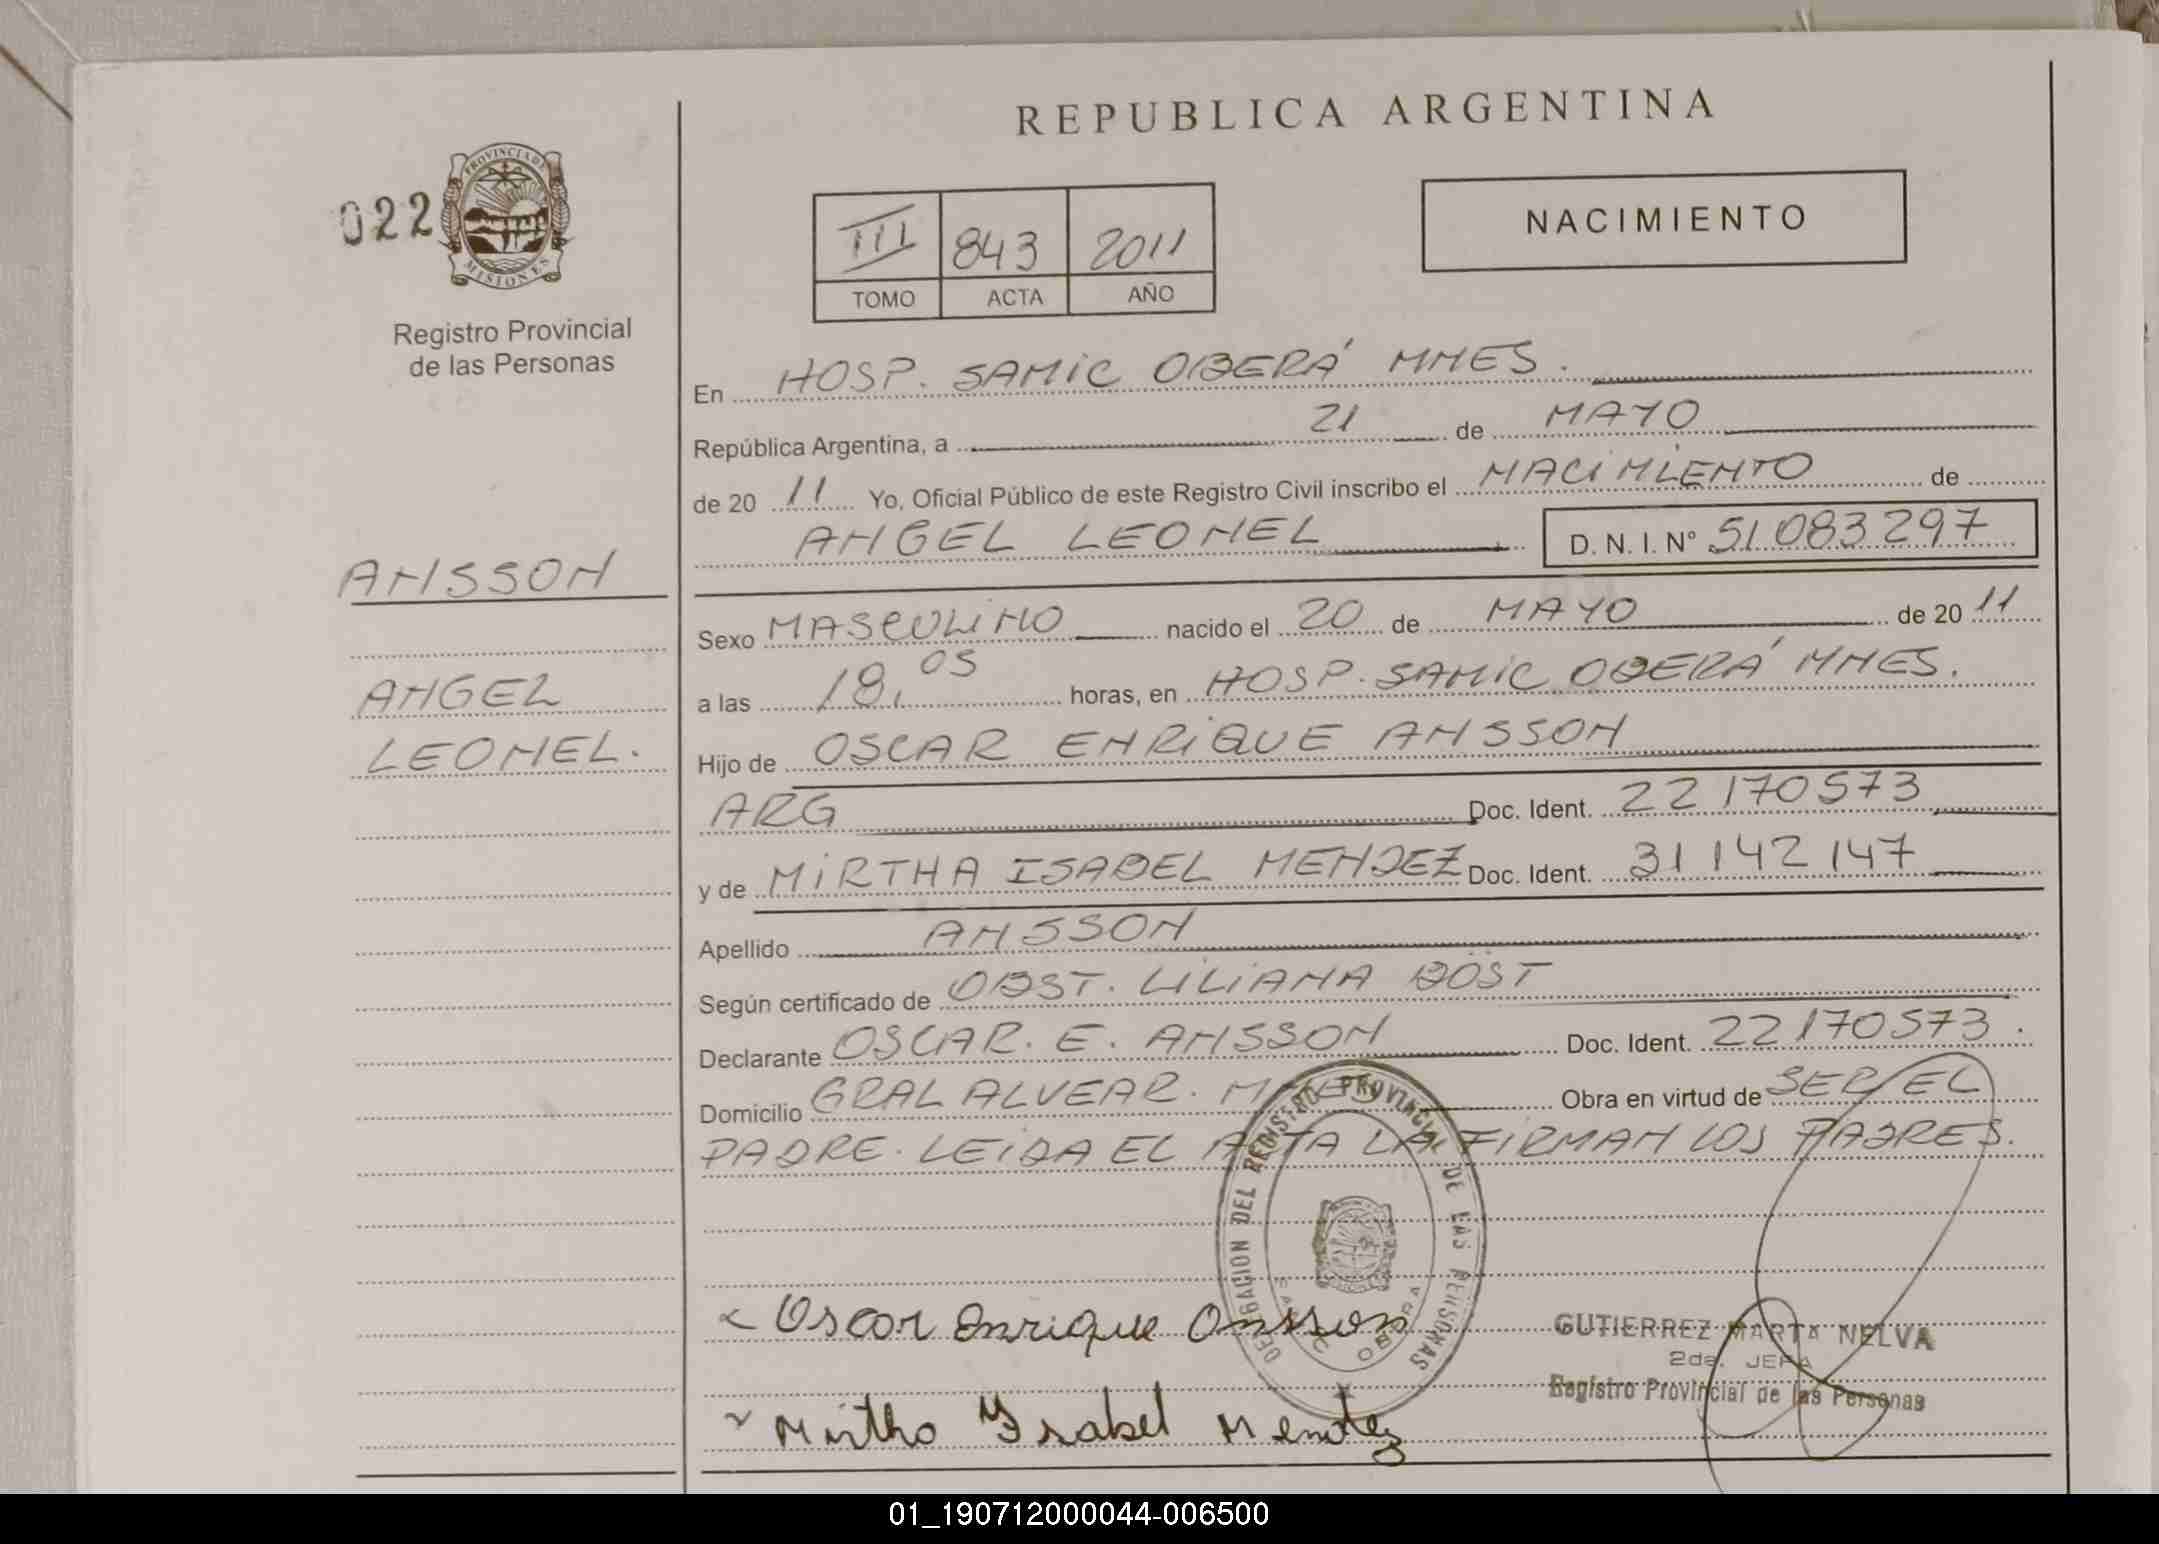 REPUBLICA ARGENTINA
022
PROVINCIA DE
MISIONES
Registro Provincial
de las Personas
NACIMIENTO
III 843 2011
TOMO ACTA AÑO
En HOSP. SAMIC OBERÁ MNES.
República Argentina, a 21 de MAYO
de 20 11 Yo, Oficial Público de este Registro Civil inscribo el NACIMIENTO de
ANGEL LEONEL D. N. I. N° 51 083 297
ANSSON
ANGEL
LEONEL.
Sexo MASCULINO nacido el 20 de MAYO de 20 11
a las 18,05 horas, en HOSP. SAMIC OBERÁ MNES.
Hijo de OSCAR ENRIQUE ANSSON
ARG Doc. Ident. 22 170573
y de MIRTHA ISABEL MENDEZ Doc. Ident. 31 142 147
Apellido ANSSON
Según certificado de OBST. LILIANA BOST
Declarante OSCAR. E. ANSSON Doc. Ident. 22 170573.
Domicilio GRAL ALVEAR. MNES Obra en virtud de SER EL
PADRE. LEIDA EL ACTA LA FIRMAN LOS PADRES.
DELEGACION DEL REGISTRO PROVINCIAL DE LAS PERSONAS
SAMIC OBERA
Oscar Enrique Ansson
GUTIERREZ MARTA NELVA
2da. JEFA
Registro Provincial de las Personas
Mirtha Ysabel Mendez
01_190712000044-006500